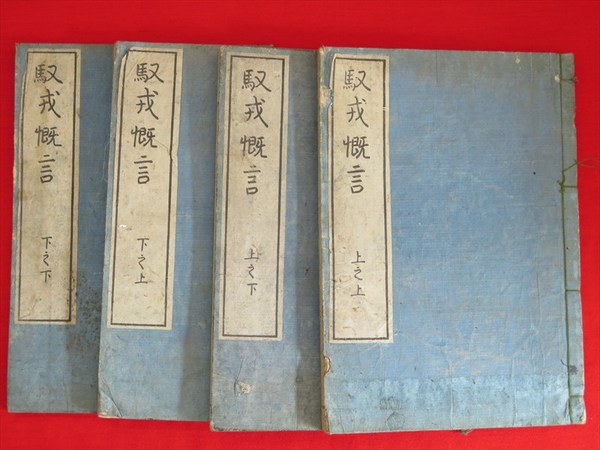 馭戎慨言
上之上
馭戎慨言
上之下
馭戎慨言
下之上
馭戎慨言
下之下